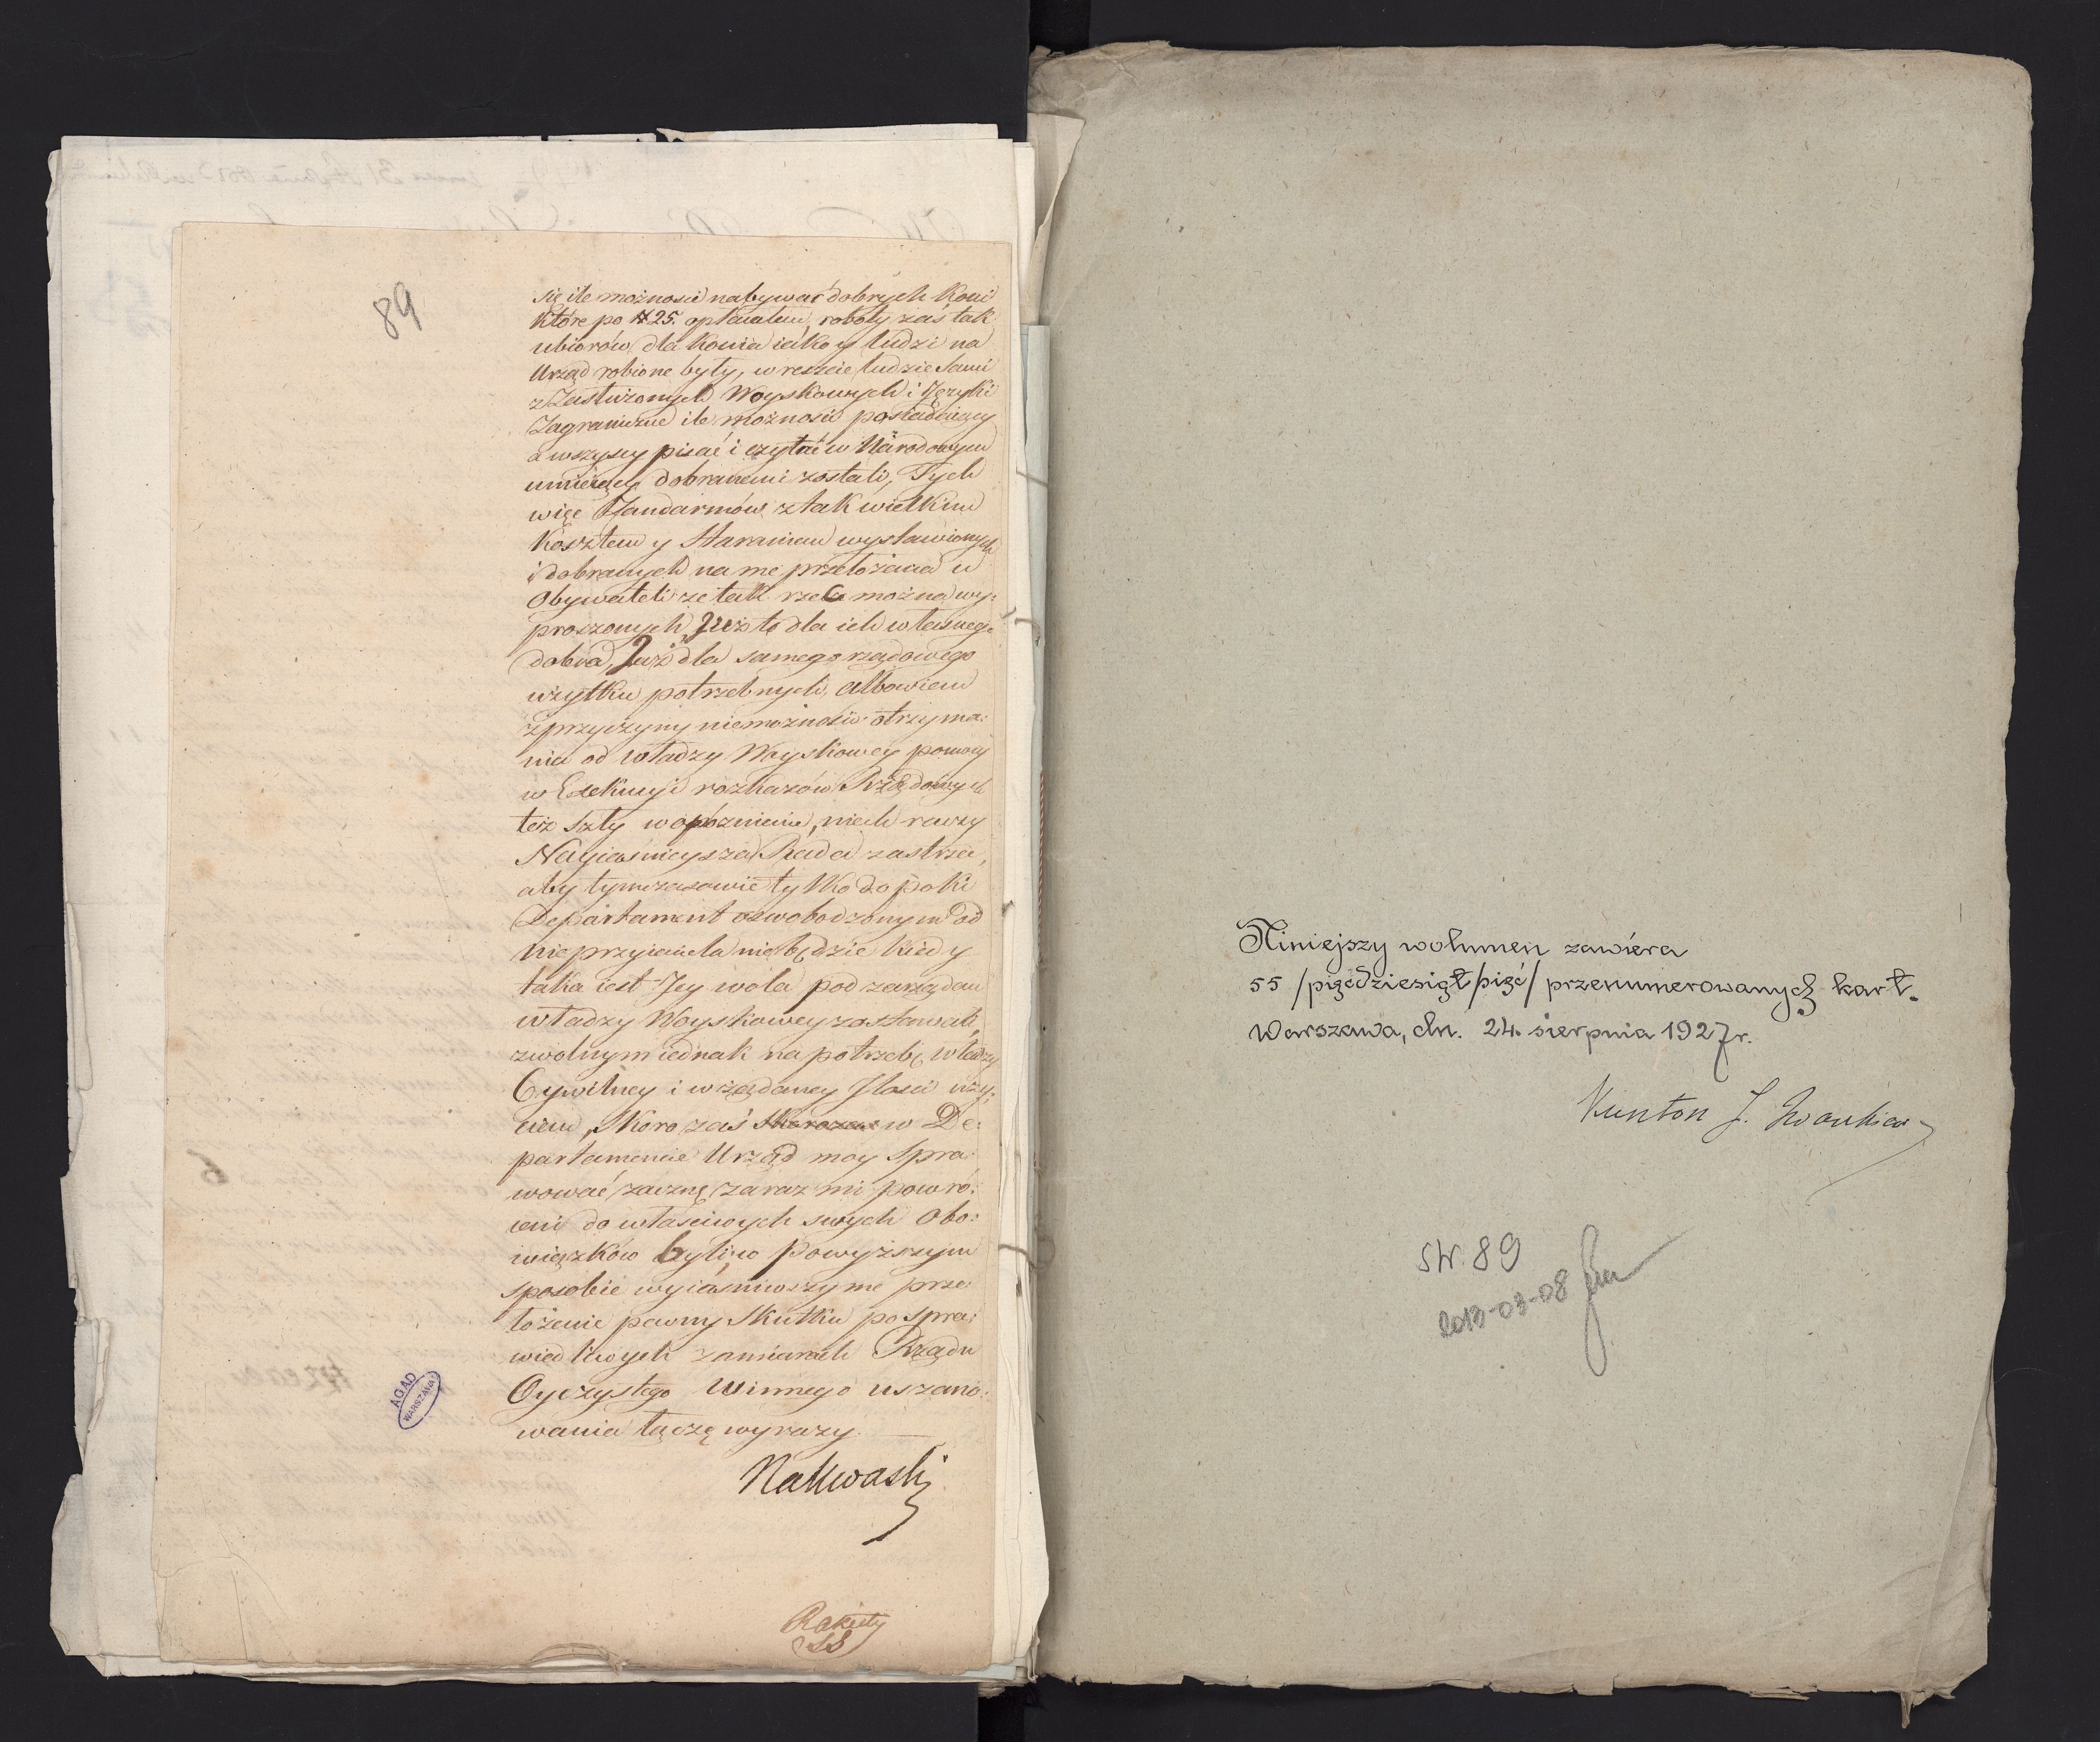 89
się ile możności nabywać dobrych koni
które po # 25. opłacałem, roboty zaś tak
ubiorów dla konia iako y ludzi na
Urząd robione były, w reszcie ludzie sami
z Zasłużonych Woyskowych i Języki
Zagraniczne ile możności posiadaiący
a wszyscy pisać i czytać w Narodowym
umieiący dobranemi zostali, Tych
więc Żandarmów z tak wielkim
Kosztem y Staraniem wystawionych
i dobranych na me przełożenia u
Obywateli że tak rzekę można wy:
proszonych, Już to dla ich własnego
dobra, Już dla samego rządowego
użytku potrzebnych, albowiem
z przyczyny niemożności otrzyma:
nia od władzy Woyskowey pomocy
w Exekucyi rozkazów Rządowych
też szły w opóznienie, niech raczy
Nayiaśnieysza Rada zastrzedz,
aby tymczasowie tylko dopoki
Departament oswobodzonym od
nieprzyiaciela nie będzie kiedy
taka iest Jey wola pod zarządem
władzy Woyskowey zostawali,
z wolnym iednak na potrzebę władzy
Cywilney i w żądaney Ilości uży:
ciem, Skoro zaś w De:
partamencie Urząd moy spra:
wować zacznę zaraz mi powró:
ceni do właściwych swych Obo:
wiązków byli, w powyższym
sposobie wyiaśniwszy me prze:
łożenie pewny Skutku po spra:
wiedliwych zamiarach Rządu
Oyczystego Winnego uszano:
wania łączę wyrazy.
Nakwaski
Rakiety
SS
AGAD
WARSZAWA
Niniejszy wolumen zawiera
55 /pięćdziesiąt pięć/ przenumerowanych kart.
Warszawa, dn. 24. sierpnia 1927 r.
Kunton J. Iwaszkiewicz
str. 89
2013-03-08